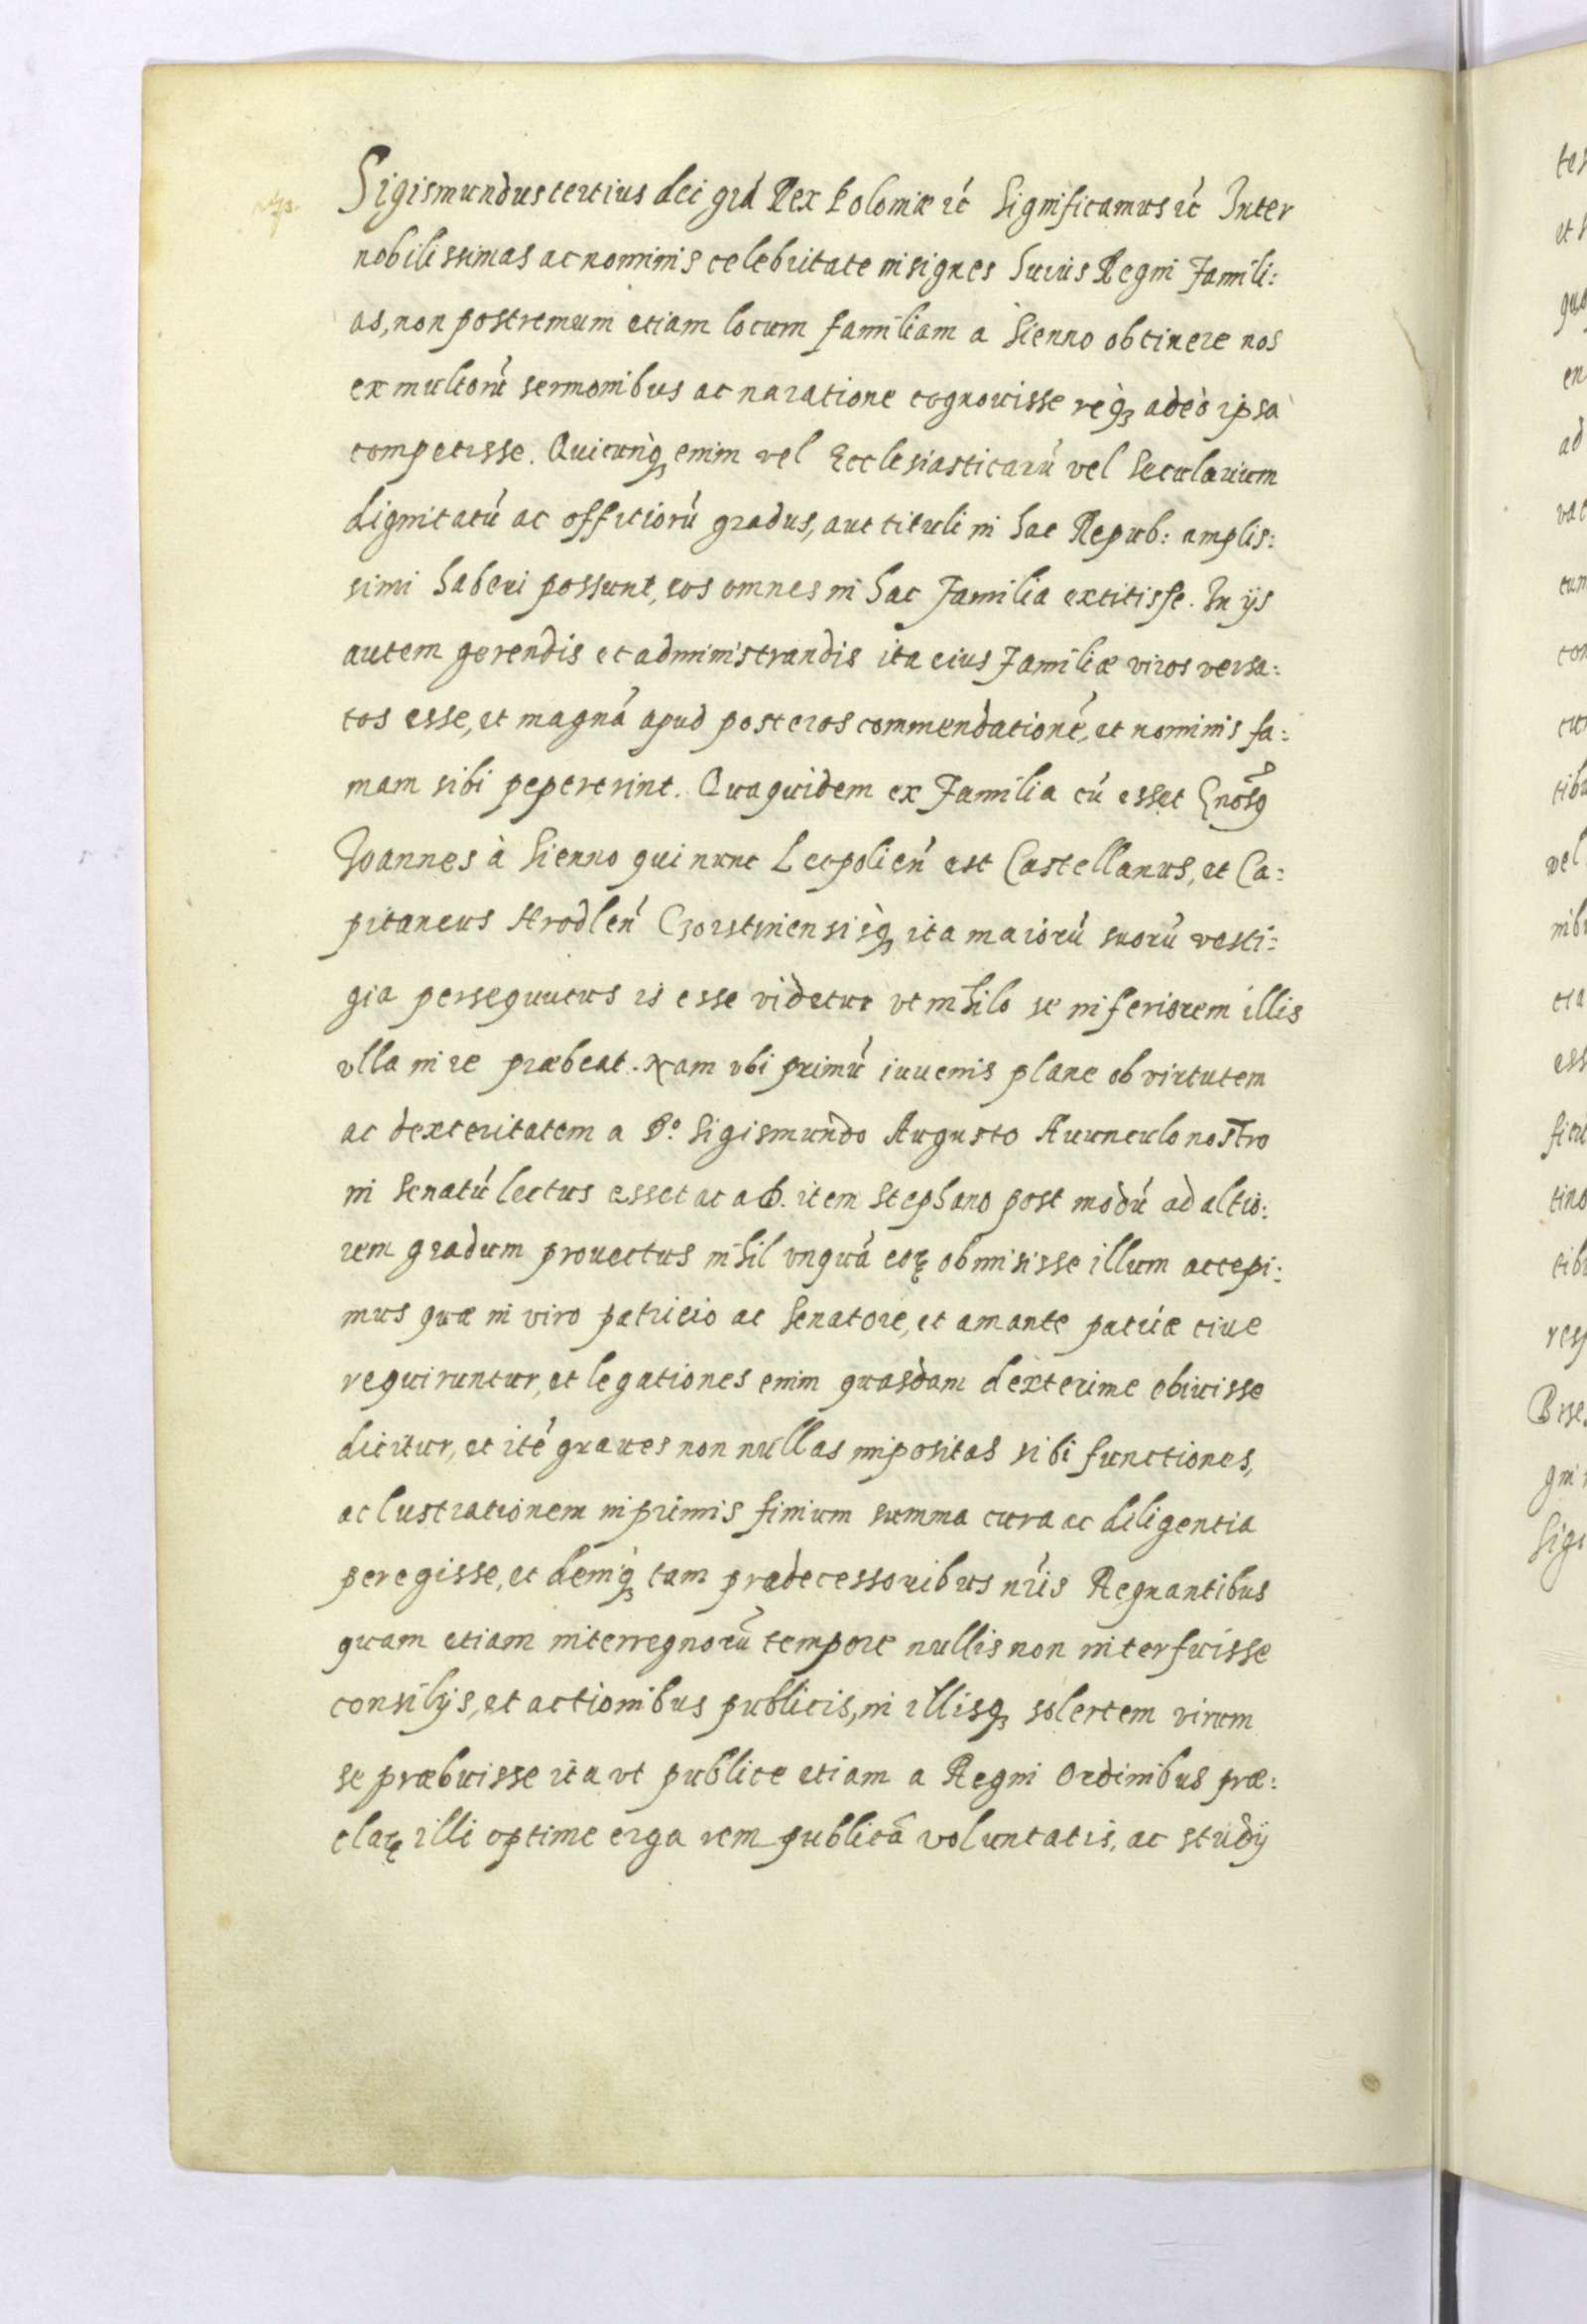 Sigismundus tertius dei gr̃a Rex Poloniæ etc̃ Significamus etc̃ Inter
nobilissimas ac nominis celebritate insignes huius Regni Famili:
as, non postremum etiam locum familiam a Sienno obtinere nos
ex multorũ sermonibus ac naratione cognouisse reqꝫ adeò ipsa
comperisse. Quicunqꝫ enim vel Ecclesiasticarũ vel Secularium
dignitatũ ac officiorũ gradus, aut tituli in hac Repub: amplis:
simi haberi possunt, eos omnes in hac Familia extitisse. In ijs
autem gerendis et administrandis ita eius Familiæ viros versa:
tos esse, et magnã apud posteros commendationẽ, et nominis fa:
mam sibi pepererint. Quaquidem ex Familia cũ esset Gnosꝰ
Joannes à Sienno qui nunc Leopolien̄ est Castellanus, et Ca:
pitaneus Hrodlen̄ Czorstinensisqꝫ ita maiorũ suorũ vesti:
gia persequutus is esse videtur vt nihilo se inferiorem illis
vlla in re præbeat. Nam vbi primũ iuuenis plane ob virtutem
ac dexteritatem a D.º Sigismundo Augusto Auunculo nostro
in Senatũ lectus esset ac a D. item Stephano post modũ ad altio:
rem gradum prouectus nihil vnquã eoꝝ obmisisse illum accepi:
mus quæ in viro patricio ac Senatore, et amante patriæ ciue
requiruntur, et legationes enim quasdam dexterime obiuisse
dicitur, et itẽ graues non nullas impositas sibi functiones,
ac lustrationem inprimis finium summa cura ac diligentia
peregisse, et deniqꝫ tam prædecessoribus nr̃is Regnantibus
quam etiam interregnorũ tempore nullis non interfuisse
consilijs, et actionibus publicis, in illisqꝫ solertem virum
se præbuisse ita vt publice etiam a Regni Ordinibus præ:
claꝝ illi optime erga rem publicã voluntatis, ac studij